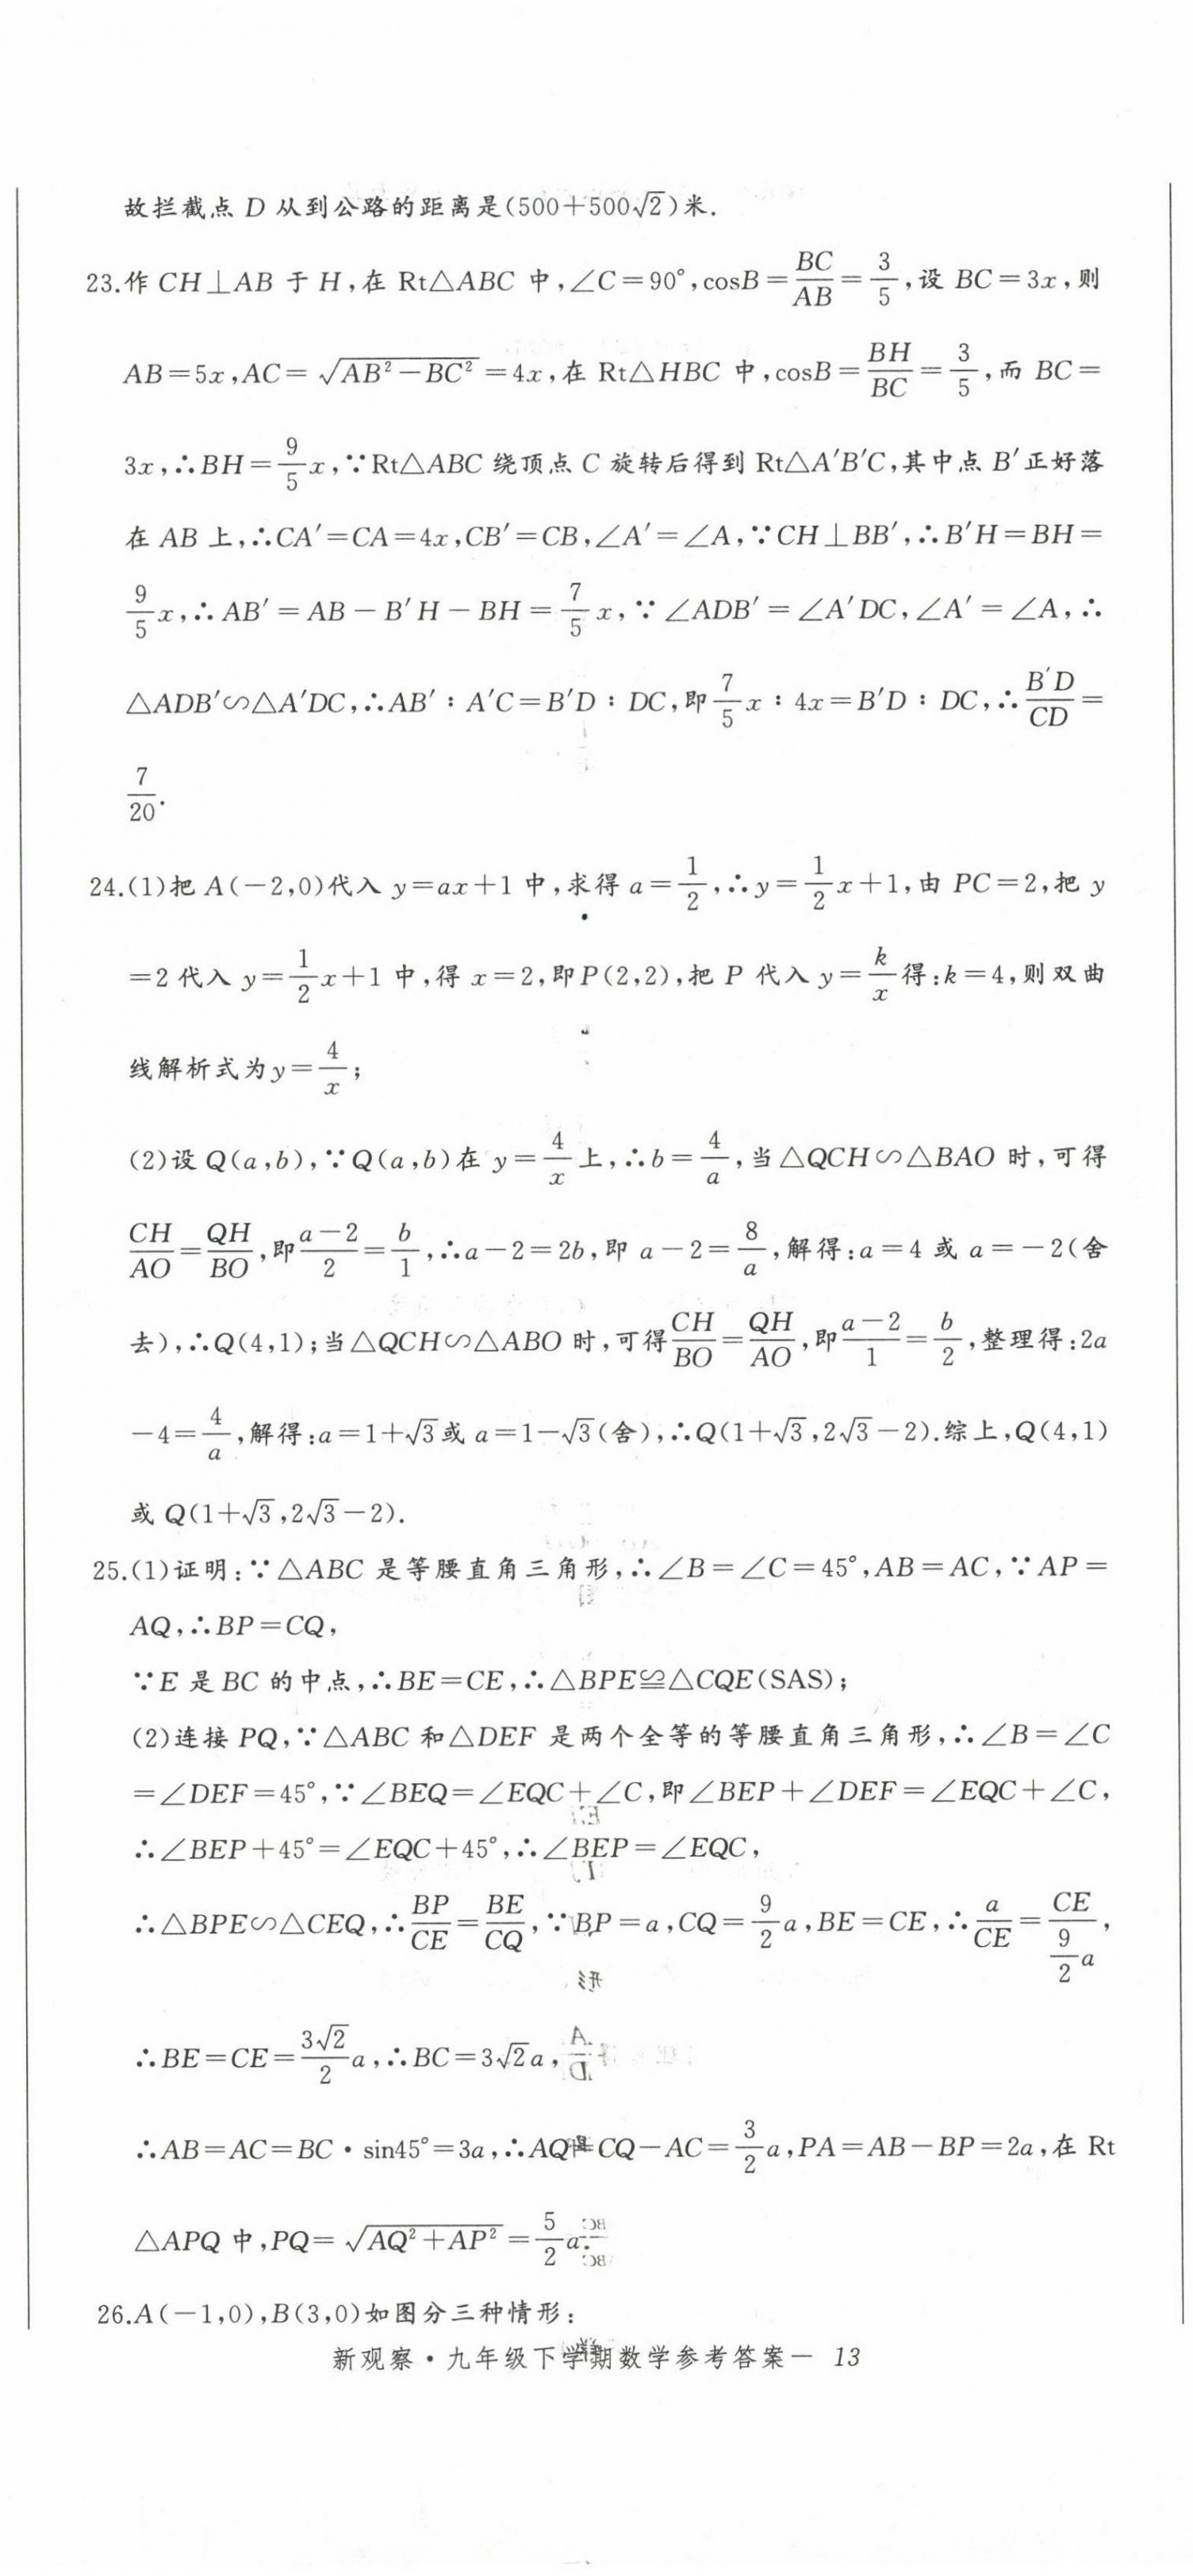 故拦截点 D 从到公路的距离是(500+500√2)米.
23.作 CH⊥AB 于 H,在 Rt△ABC 中,∠C=90°,cosB=BC/AB=3/5,设 BC=3x,则
AB=5x,AC=√(AB²-BC²)=4x,在 Rt△HBC 中,cosB=BH/BC=3/5,而 BC=
3x,∴BH=9/5x,∵Rt△ABC 绕顶点 C 旋转后得到 Rt△A′B′C,其中点 B′正好落
在 AB 上,∴CA′=CA=4x,CB′=CB,∠A′=∠A,∵CH⊥BB′,∴B′H=BH=
9/5x,∴AB′=AB-B′H-BH=7/5x,∵∠ADB′=∠A′DC,∠A′=∠A,∴
△ADB′∽△A′DC,∴AB′:A′C=B′D:DC,即7/5x:4x=B′D:DC,∴B′D/CD=
7/20.
24.(1)把 A(-2,0)代入 y=ax+1 中,求得 a=1/2,∴y=1/2x+1,由 PC=2,把 y
=2 代入 y=1/2x+1 中,得 x=2,即P(2,2),把 P 代入 y=k/x得:k=4,则双曲
线解析式为y=4/x;
(2)设 Q(a,b),∵Q(a,b)在 y=4/x上,∴b=4/a,当△QCH∽△BAO 时,可得
CH/AO=QH/BO,即(a-2)/2=b/1,∴a-2=2b,即 a-2=8/a,解得:a=4 或 a=-2(舍
去),∴Q(4,1);当△QCH∽△ABO 时,可得CH/BO=QH/AO,即(a-2)/1=b/2,整理得:2a
-4=4/a,解得:a=1+√3或 a=1-√3(舍),∴Q(1+√3,2√3-2).综上,Q(4,1)
或 Q(1+√3,2√3-2).
25.(1)证明:∵△ABC 是等腰直角三角形,∴∠B=∠C=45°,AB=AC,∵AP=
AQ,∴BP=CQ,
∵E 是 BC 的中点,∴BE=CE,∴△BPE≌△CQE(SAS);
(2)连接 PQ,∵△ABC 和△DEF 是两个全等的等腰直角三角形,∴∠B=∠C
=∠DEF=45°,∵∠BEQ=∠EQC+∠C,即∠BEP+∠DEF=∠EQC+∠C,
∴∠BEP+45°=∠EQC+45°,∴∠BEP=∠EQC,
∴△BPE∽△CEQ,∴BP/CE=BE/CQ,∵BP=a,CQ=9/2a,BE=CE,∴a/CE=CE/(9/2a),
∴BE=CE=3√2/2a,∴BC=3√2a,
∴AB=AC=BC·sin45°=3a,∴AQ=CQ-AC=3/2a,PA=AB-BP=2a,在 Rt
△APQ 中,PQ=√(AQ²+AP²)=5/2a.
26.A(-1,0),B(3,0)如图分三种情形:
新观察·九年级下学期数学参考答案— 13